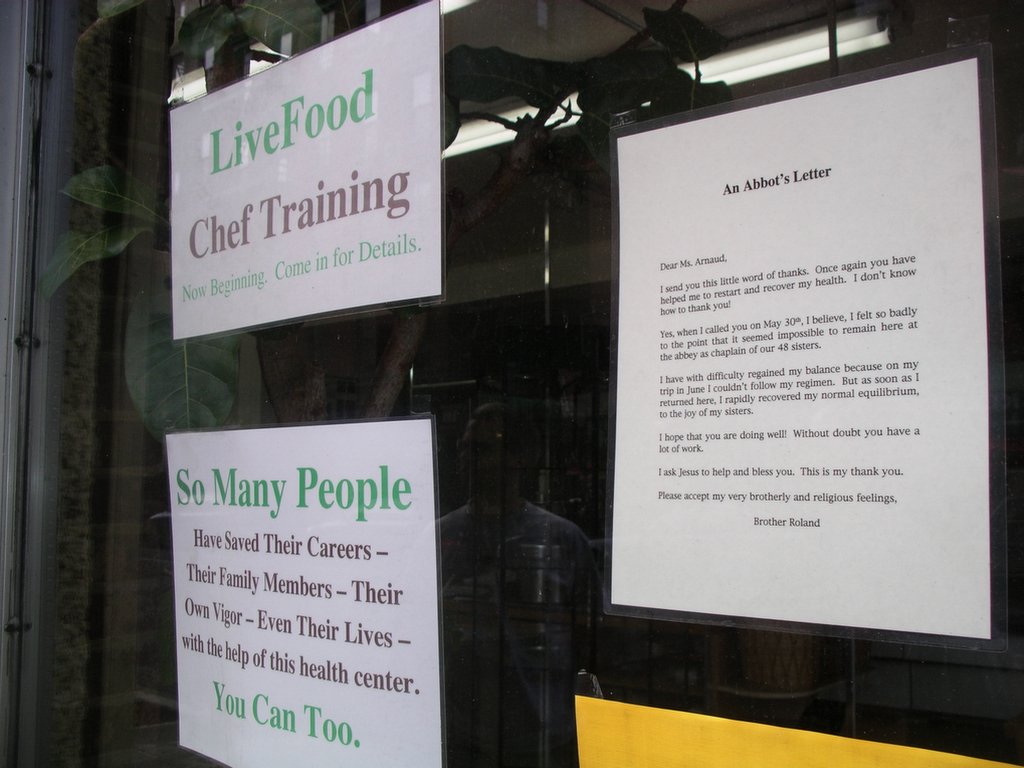 LiveFood
Chef Training
Now Beginning. Come in for Details.
So Many People
Have Saved Their Careers –
Their Family Members – Their
Own Vigor – Even Their Lives –
with the help of this health center.
You Can Too.
An Abbot's Letter
Dear Ms. Arnaud,
I send you this little word of thanks. Once again you have
helped me to restart and recover my health. I don't know
how to thank you!
Yes, when I called you on May 30th, I believe, I felt so badly
to the point that it seemed impossible to remain here at
the abbey as chaplain of our 48 sisters.
I have with difficulty regained my balance because on my
trip in June I couldn't follow my regimen. But as soon as I
returned here, I rapidly recovered my normal equilibrium,
to the joy of my sisters.
I hope that you are doing well! Without doubt you have a
lot of work.
I ask Jesus to help and bless you. This is my thank you.
Please accept my very brotherly and religious feelings,
Brother Roland